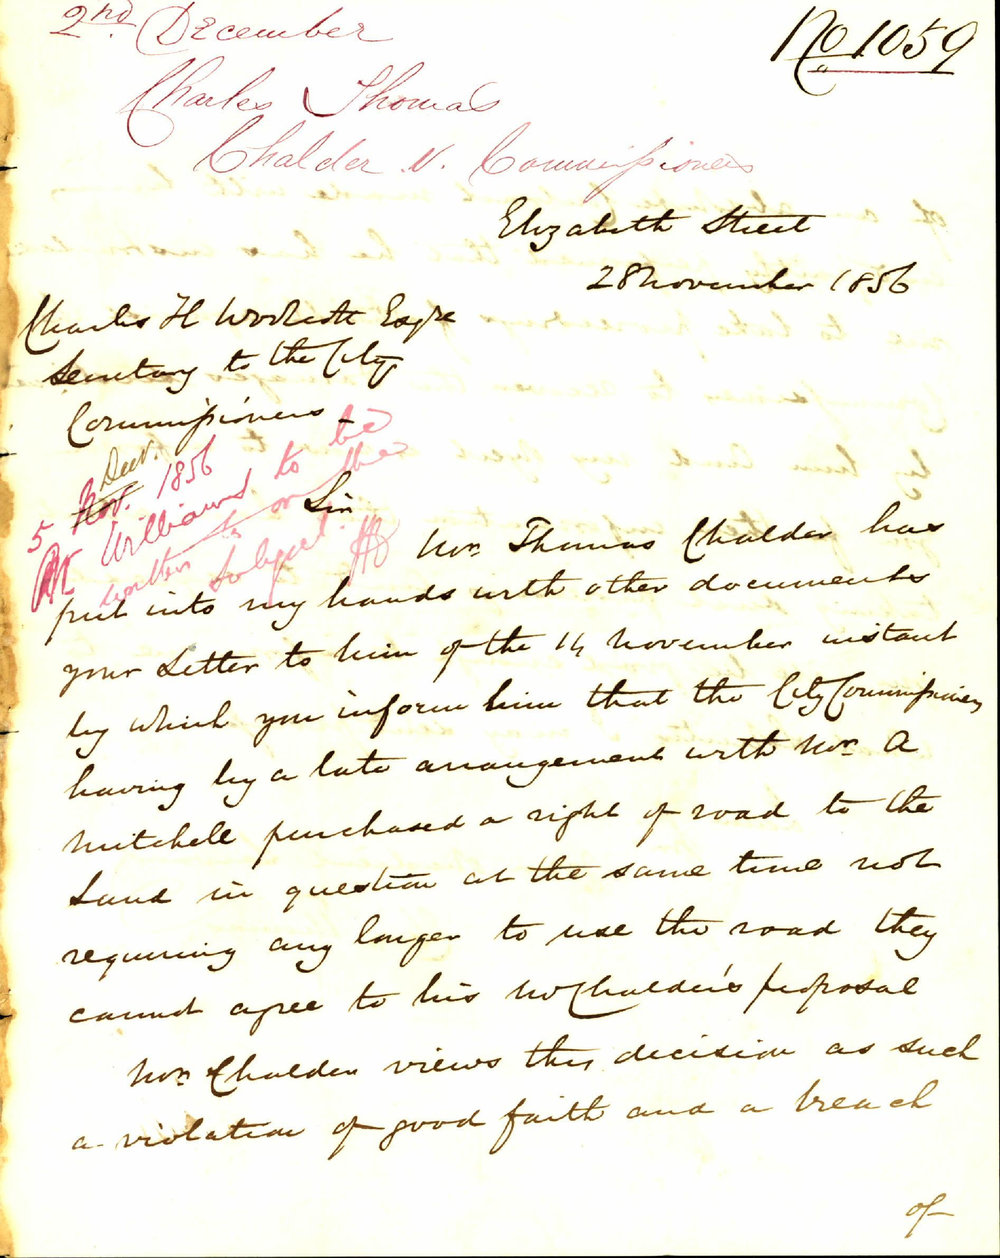 2nd December
No 1059
Charles Thomas
Chalder v. Commissioners
Elizabeth Street
28 November 1856
Charles H Woolcott Esqre
Secretary to the City
Commissioners
Decr.
5 Nov. 1856
Mr Williams to be
written to on the
subject.
Sir
Mr. Thomas Chalder has
put into my hands with other documents
your Letter to him of the 14 November instant
by which you inform him that the City Commissioners
having by a late arrangement with Mr. A
Mitchell purchased a right of road to the
Land in question at the same time not
requiring any longer to use the road they
cannot agree to his Mr Chalder's proposal
Mr. Chalder views this decision as such
a violation of good faith and a breach
of